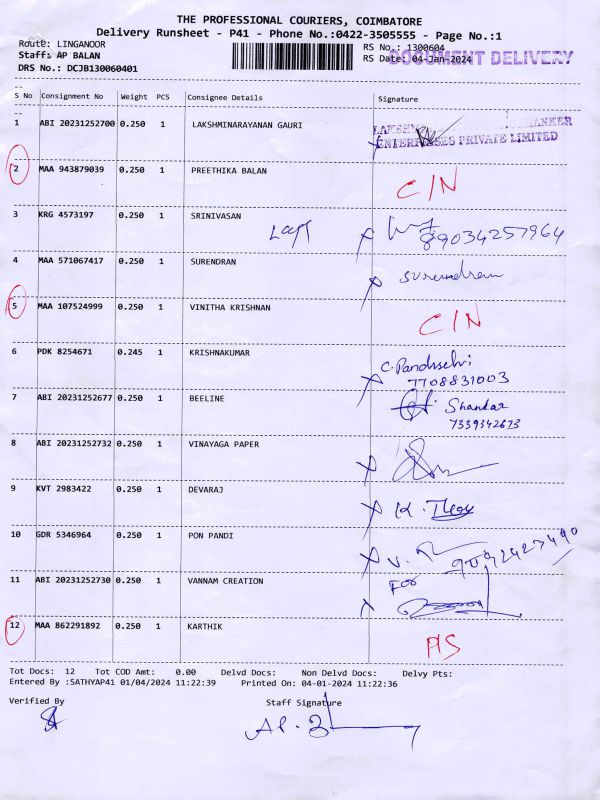 THE PROFESSIONAL COURIERS, COIMBATORE
Delivery Runsheet - P41 - Phone No.:0422-3505555 - Page No.:1
Route: LINGANOOR RS No.: 1300604
Staff: AP BALAN RS Date: 04-Jan-2024 DOCUMENT DELIVERY
DRS No.: DCJB130060401
S No Consignment No Weight PCS Consignee Details Signature
1 ABI 20231252700 0.250 1 LAKSHMINARAYANAN GAURI
ENTERPRISES PRIVATE LIMITED
2 MAA 943879039 0.250 1 PREETHIKA BALAN C/N
3 KRG 4573197 0.250 1 SRINIVASAN 89034257964
4 MAA 571067417 0.250 1 SURENDRAN Surendran
5 MAA 107524999 0.250 1 VINITHA KRISHNAN C/N
6 PDK 8254671 0.245 1 KRISHNAKUMAR
7708831003
7 ABI 20231252677 0.250 1 BEELINE Shankar
7339342673
8 ABI 20231252732 0.250 1 VINAYAGA PAPER
9 KVT 2983422 0.250 1 DEVARAJ
10 GDR 5346964 0.250 1 PON PANDI
11 ABI 20231252730 0.250 1 VANNAM CREATION For
12 MAA 862291892 0.250 1 KARTHIK P/S
Tot Docs: 12 Tot COD Amt: 0.00 Delvd Docs: Non Delvd Docs: Delvy Pts:
Entered By :SATHYAP41 01/04/2024 11:22:39 Printed On: 04-01-2024 11:22:36
Verified By Staff Signature